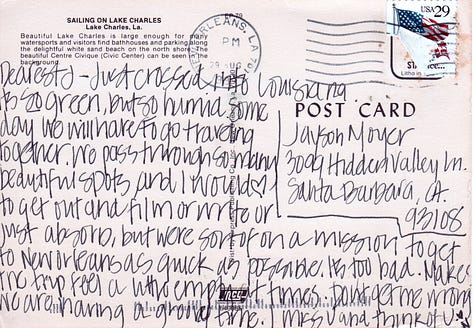 SAILING ON LAKE CHARLES
Lake Charles, La.
Beautiful Lake Charles is large enough for many
watersports and visitors find bathhouses and parking along
the delightful white sand beach on the north shore. The
beautiful Centre Civique (Civic Center) can be seen in the
background.
ORLEANS, LA
PM
29 AUG
USA 29
Dearest J - Just crossed into Louisiana
Its so green, but so humid. some
day we will have to go traveling
together. We pass through so many
beautiful spots and I would
to get out and film or write or
just absorb, but were sort of on a mission to get
to New Orleans as quick as possible. Its too bad. Makes
the trip feel a little empty at times. Dont get me wrong
we are having a great time. I miss U and think of U.
POST CARD
Jayson Moyer
3099 Hidden Valley Ln.
Santa Barbara, CA.
93108